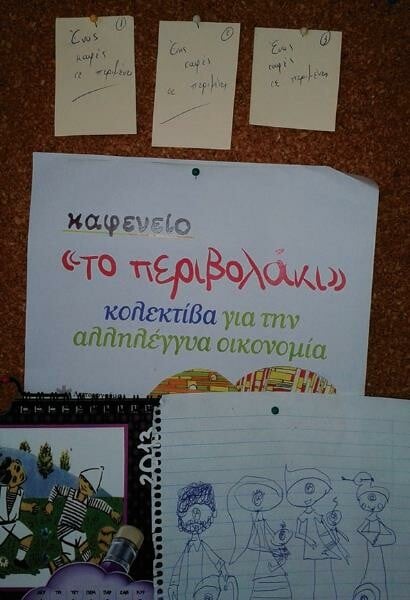 1
Ένας
καφές
σε περιμένει
2
Ένας
καφές
σε περιμένει
3
Ένας
καφές
σε περιμένει
καφενείο
«το περιβολάκι»
κολεκτίβα για την
αλληλέγγυα οικονομία
2013
ΔΕΥ ΤΡ ΤΕΤ ΠΕΜ ΠΑΡ ΣΑΒ ΚΥΡ